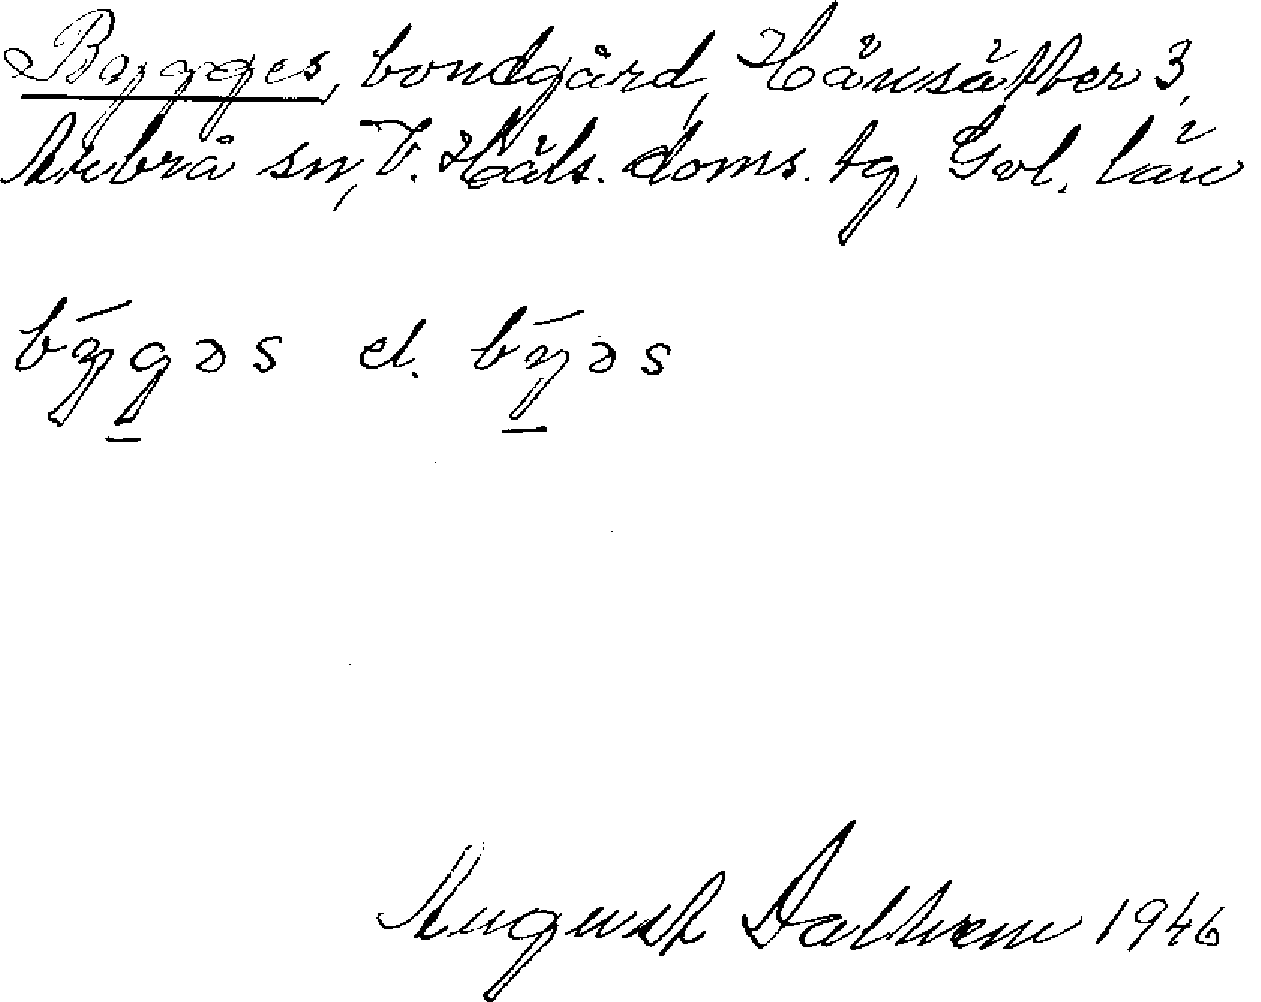 Bygges, bondgård, Hånsätter 3,
Arbrå sn, V. Häls. doms. tg, Gvl. län
býgəs el. býəs
August Dalhem 1946